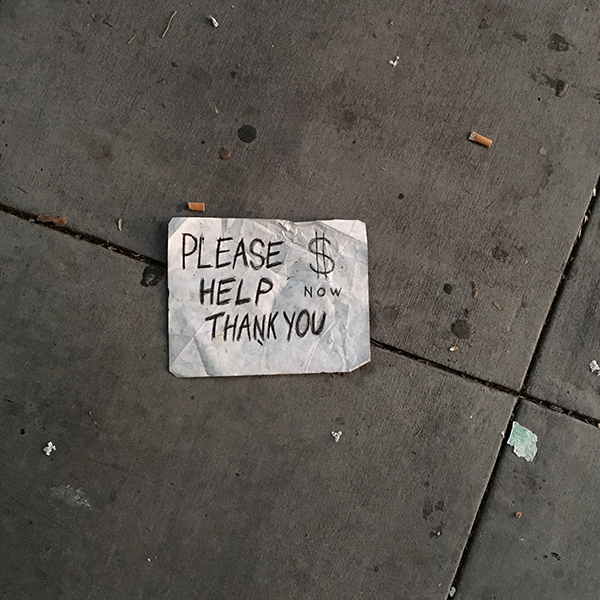 PLEASE $
HELP NOW
THANK YOU